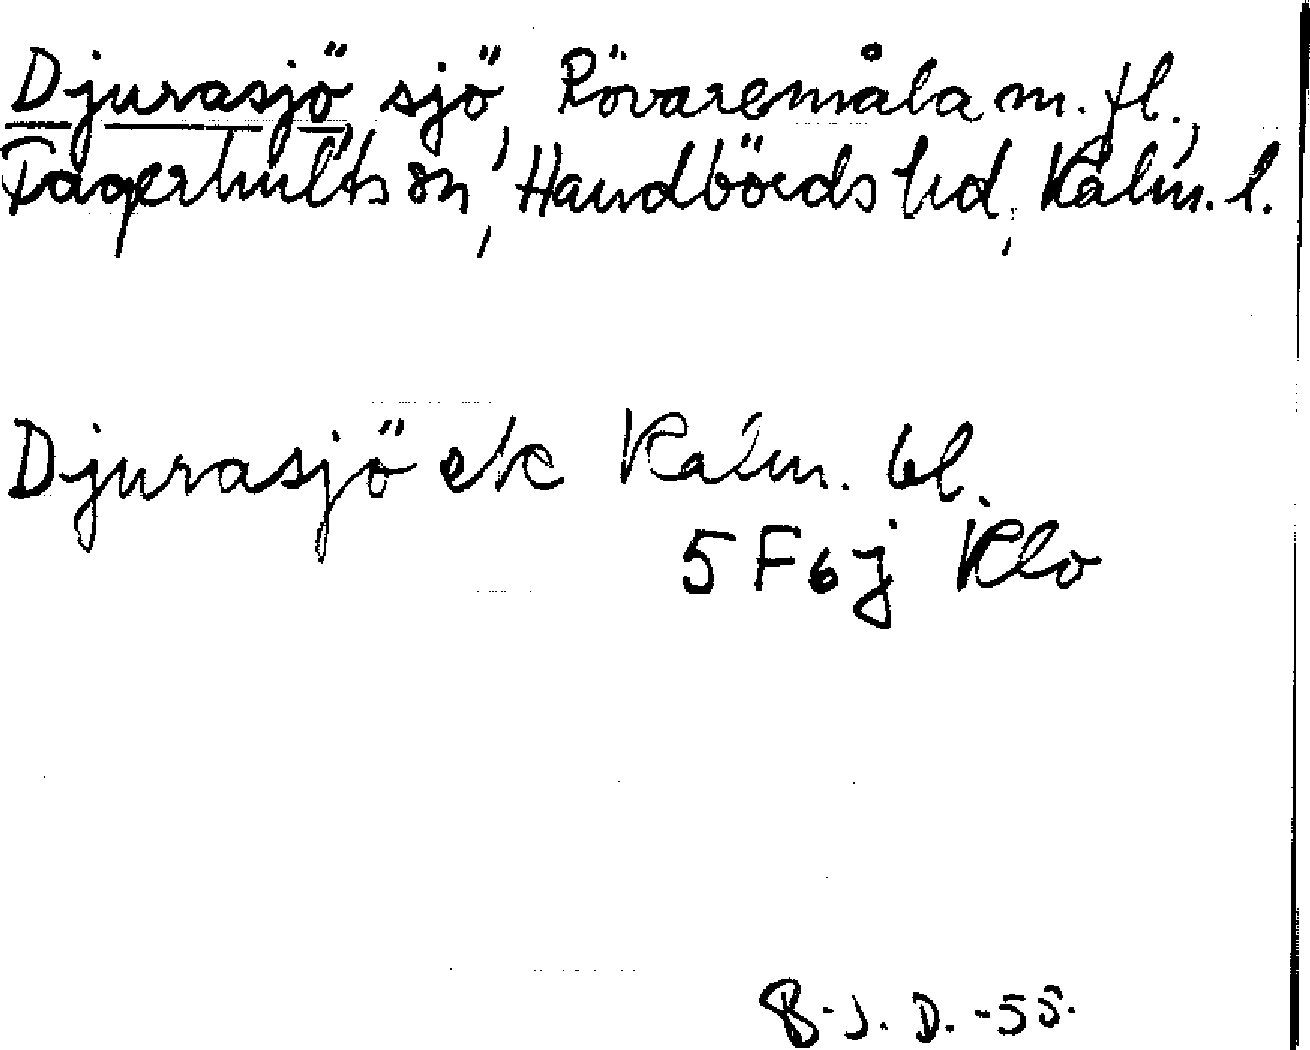 Djurasjö, sjö, Rövaremåla m. fl.,
Fagerhults sn, Handbörds hd, Kalm. l.
Djurasjö ek Kalm. bl.
5 F 6 j Klo
B. J. D. -55.